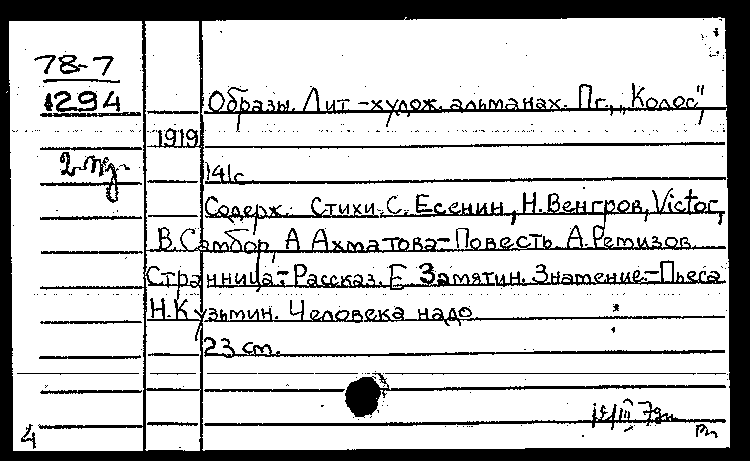 78-7
1294
Образы. Лит-худож. альманах. Пг., „Колос",
1919
141с.
Содерж.: Стихи. С. Есенин, Н. Венгров, Victor,
В. Самбор, А Ахматова-Повесть. А. Ремизов
Странница.-Рассказ. Е Замятин. Знамение.-Пьеса
Н. Кузьмин. Человека надо
23 cm.
4